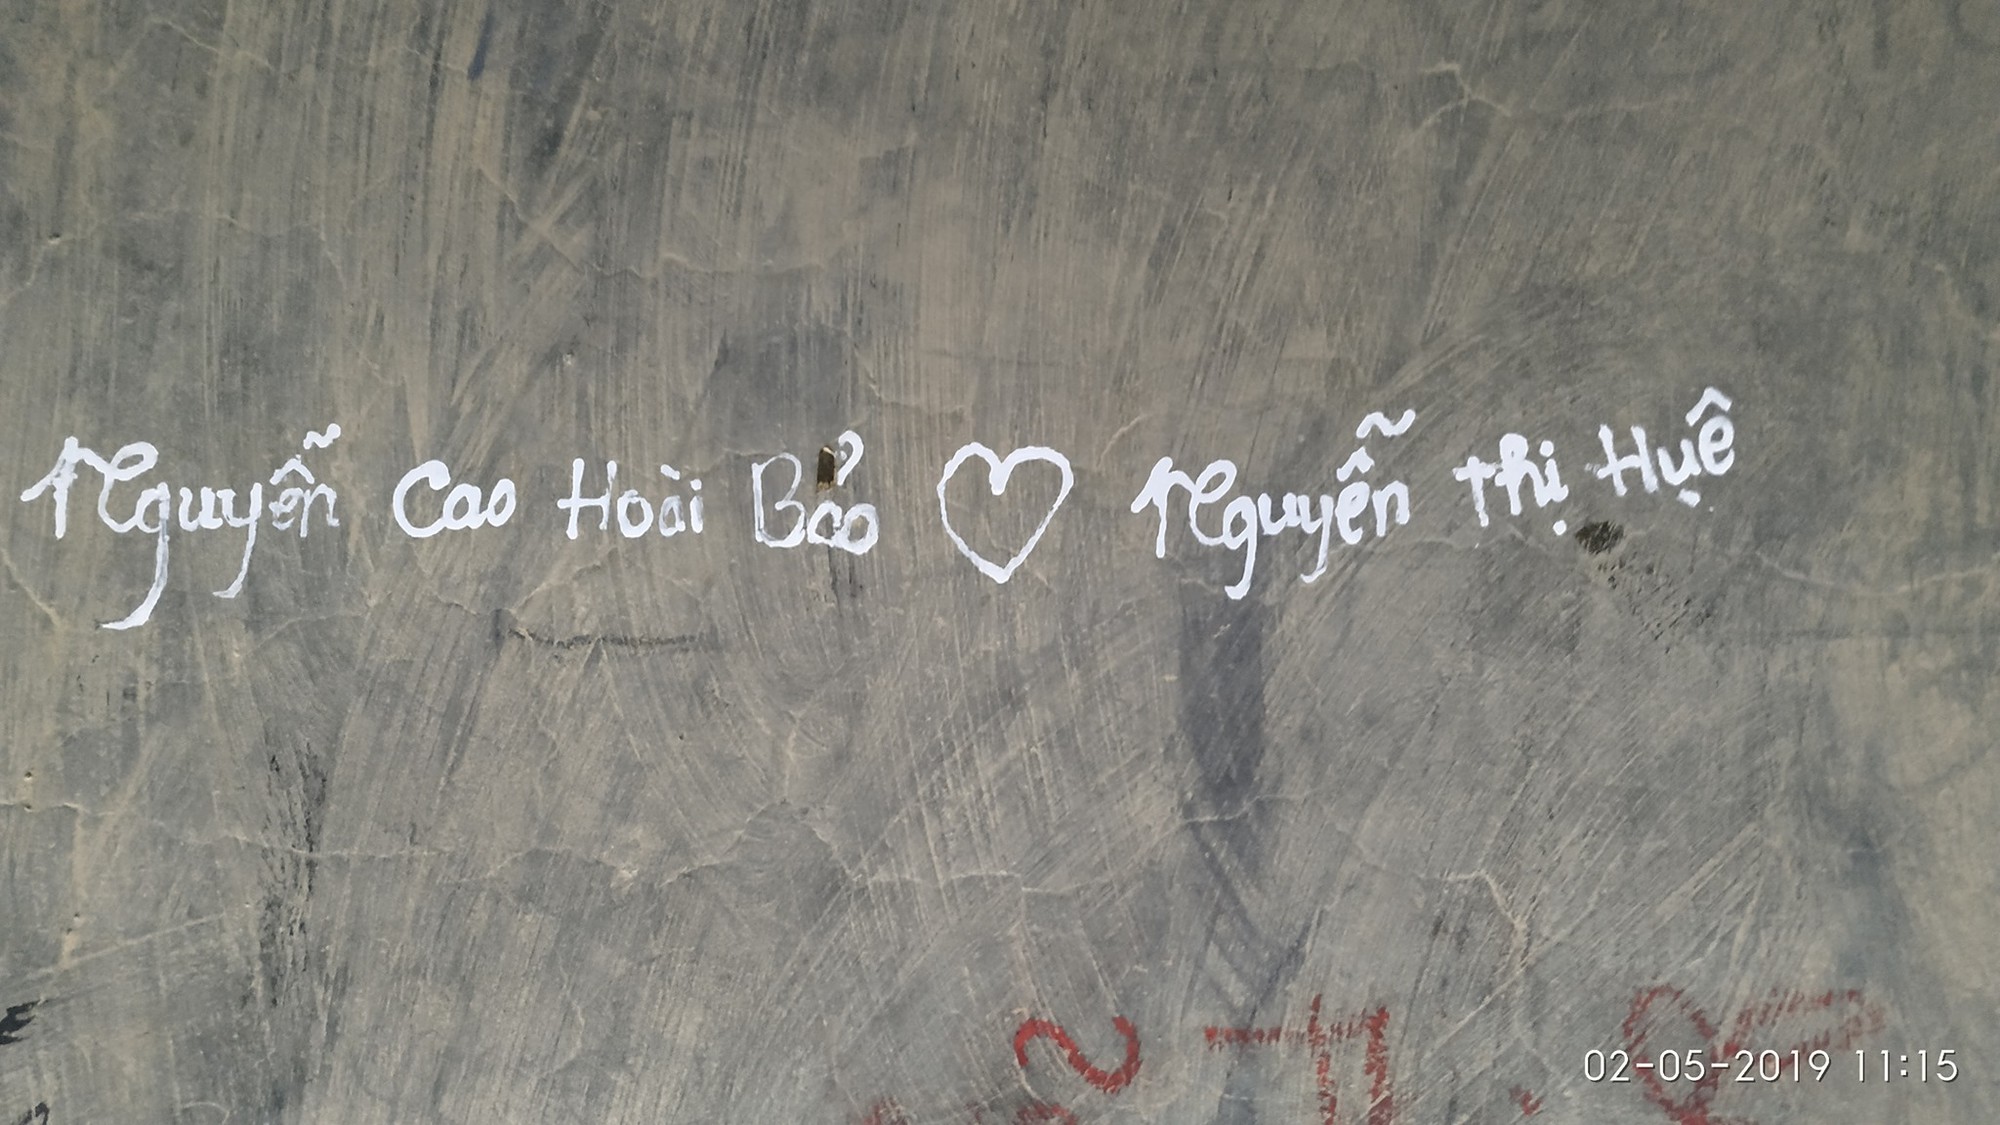 Nguyễn Cao Hoài Bảo ♡ Nguyễn Thị Huệ
02-05-2019 11:15